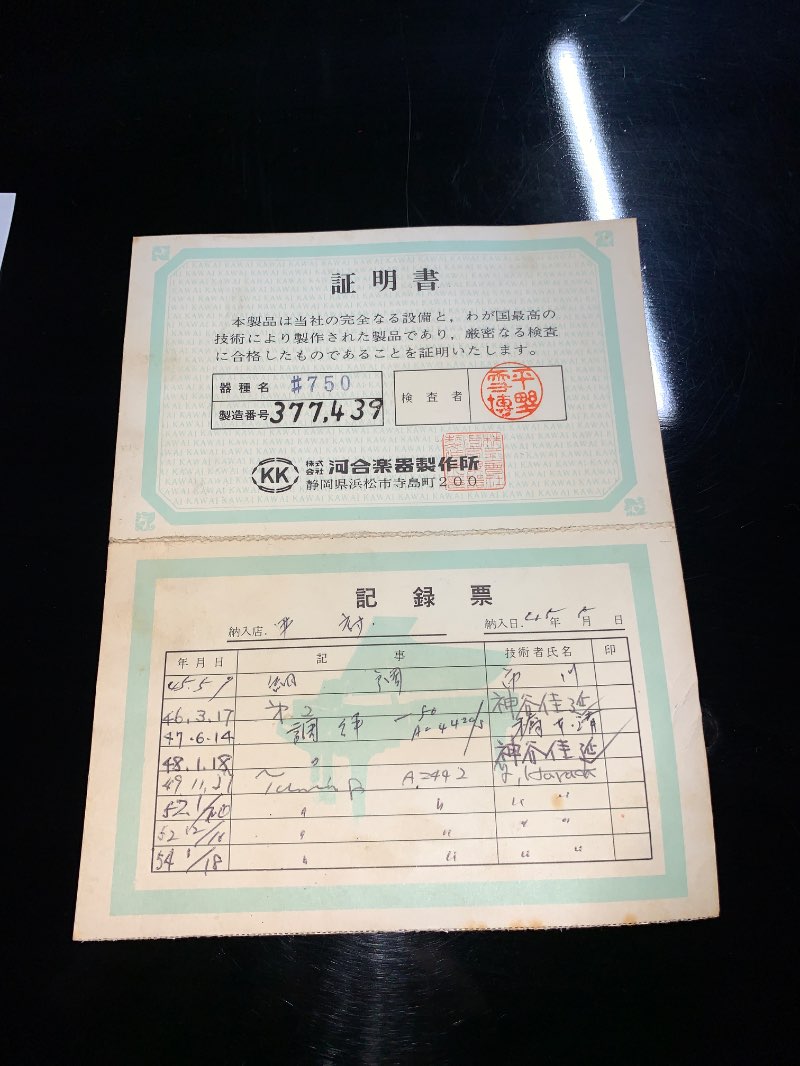 証明書
本製品は当社の完全なる設備と，わが国最高の
技術により製作された製品であり，厳密なる検査
に合格したものであることを証明いたします。
器種名 #750
製造番号 377,439
検査者 平野
KK 株式会社 河合楽器製作所
静岡県浜松市寺島町200
記録票
納入店. 納入日. 45年 5月 日
年月日 記事 技術者氏名 印
45.5.9 調
46.3.17 第2 神谷佳延
47.6.14 調律 A=442
48.1.18 〃 神谷佳延
49 11.27 A=442 Harada
52.1 〃 〃 〃 〃
52 12/18 〃 〃 〃 〃
54 /18 〃 〃 〃 〃